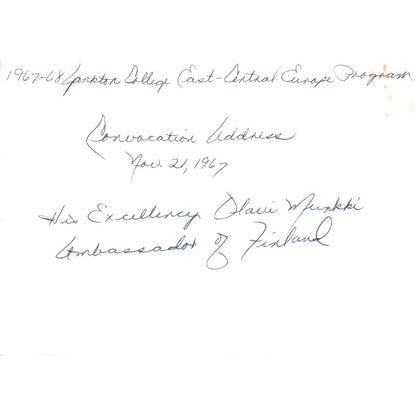 1967-68 Yankton College East-Central Europe Program
Convocation Address
Nov. 21, 1967
His Excellency Olavi Munkki
Ambassador of Finland